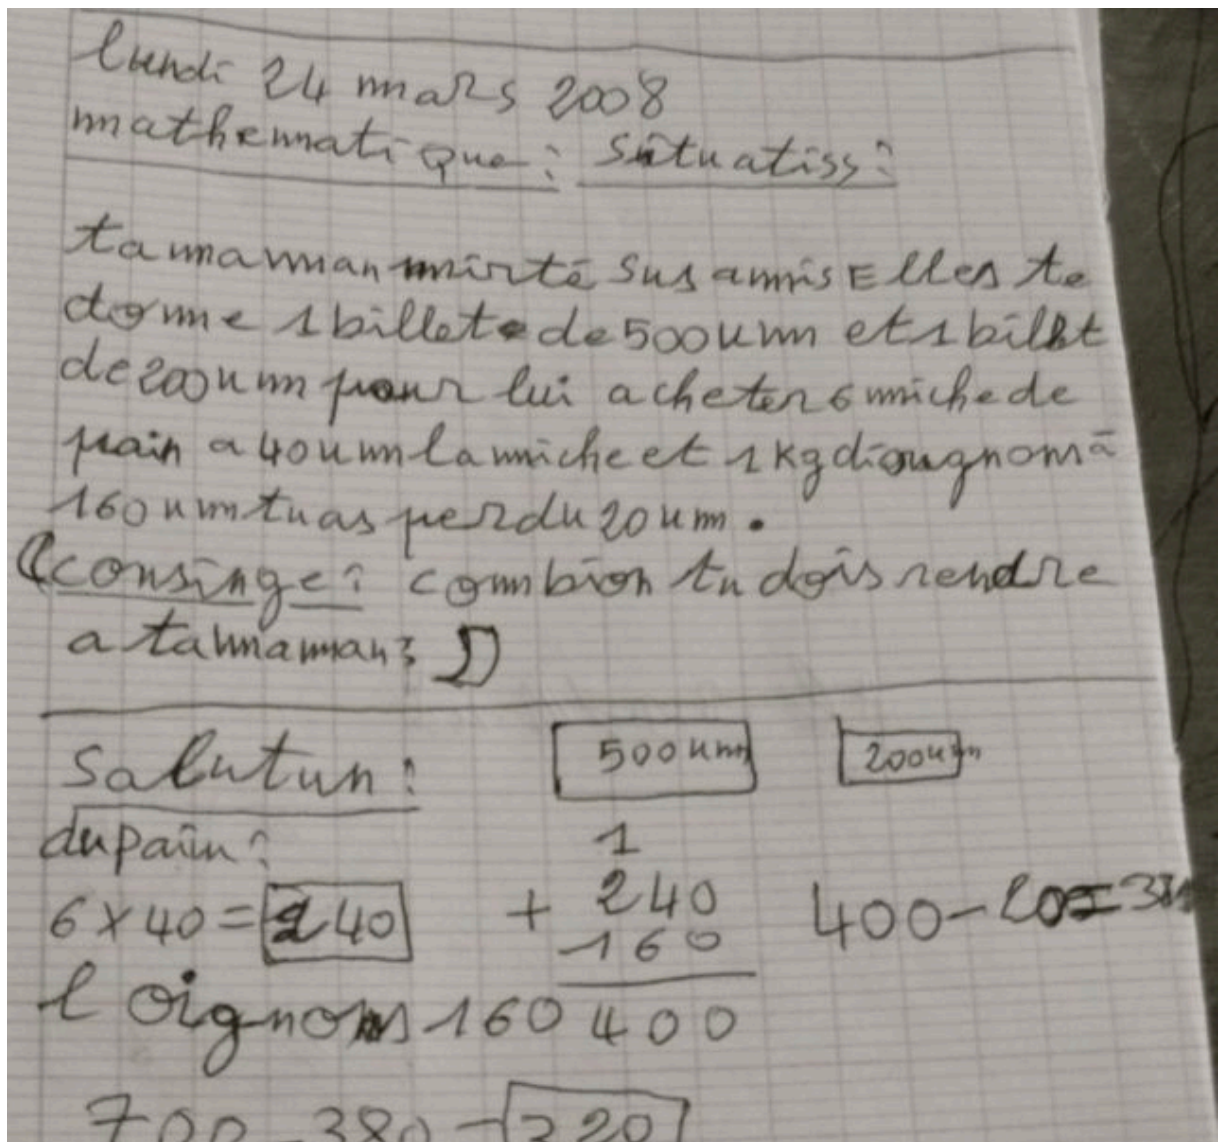 lundi 24 mars 2008
mathematique: situatiss:
ta maman mirté sus amis Elles te
donne 1 billet de 500 um et 1 billet
de 200 um pour lui acheter 6 miche de
pain a 40 um la miche et 1 kg diougnom à
160 um tu as perdu 20 um.
consinge: combion tu dois rendre
a ta maman?
Salutun: 500 um 200 um
du pain: 1
6 x 40 = 240 + 240 400 - 20 = 38
160
l oignons 160 400
700 - 380 = 320